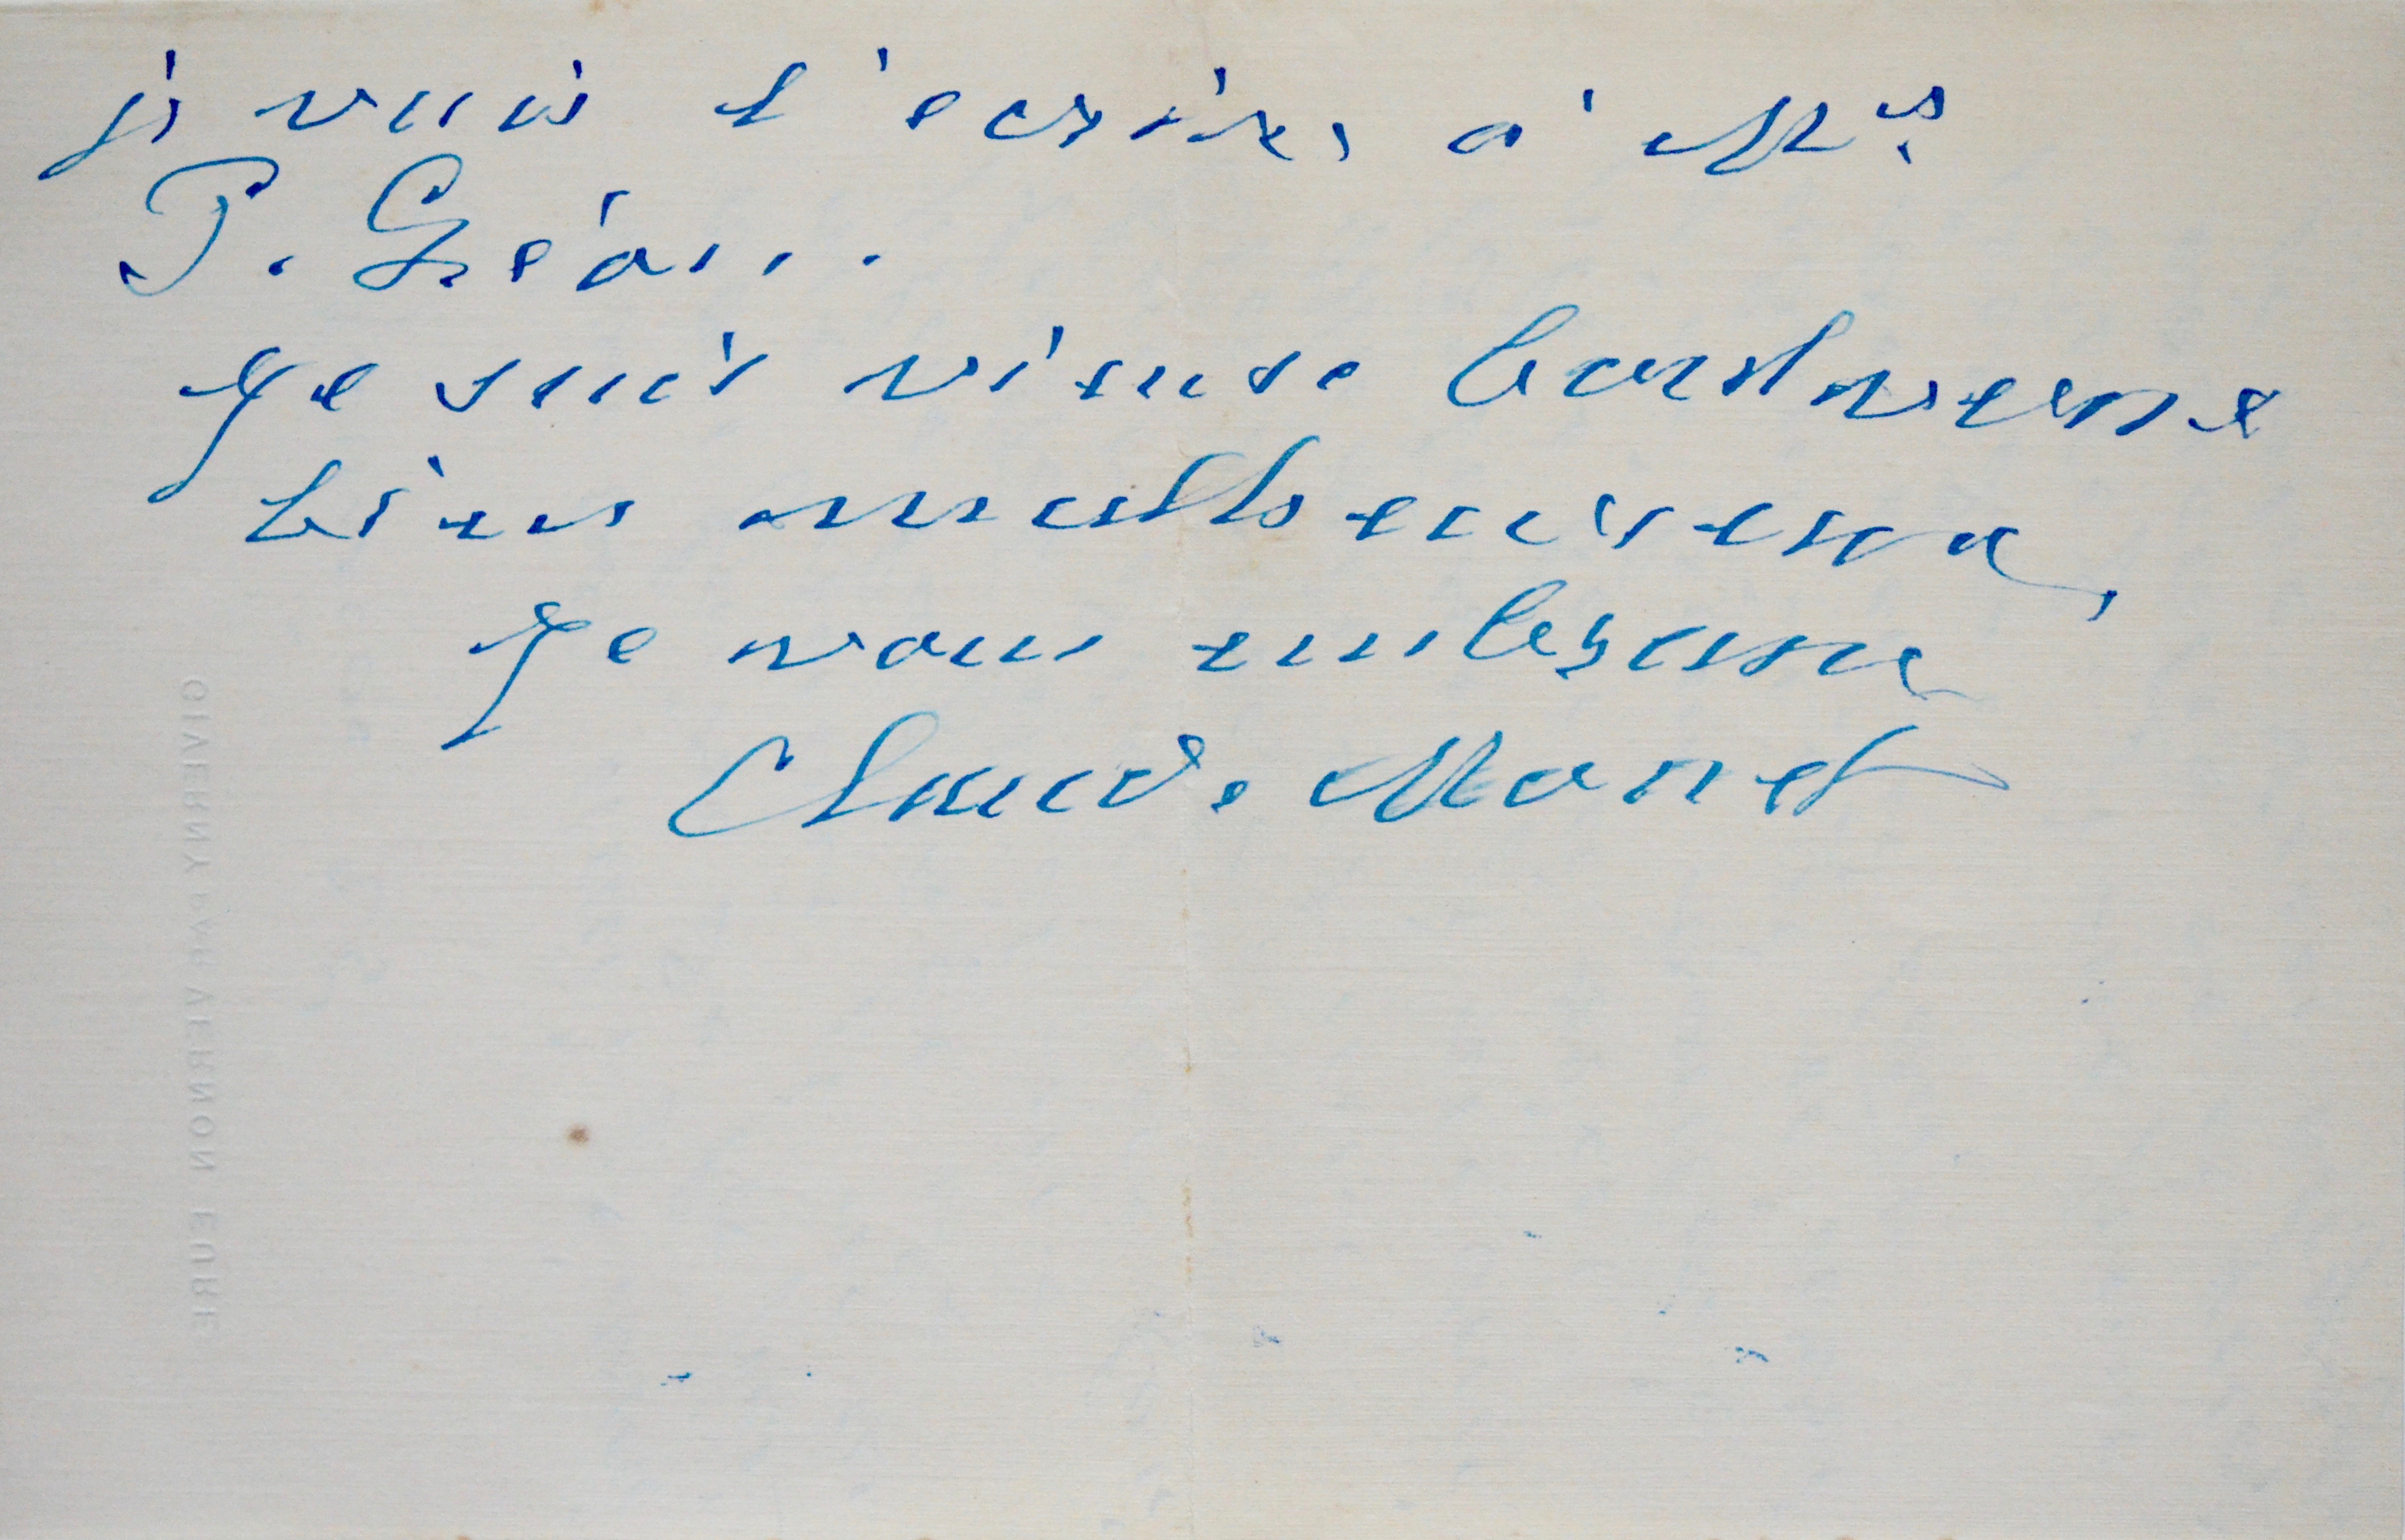 je vais l'écrire à Mr.
P. Léon.
Je suis bouleversé
bien malheureux,
Je vous embrasse
Claude Monet
GIVERNY PAR VERNON EURE